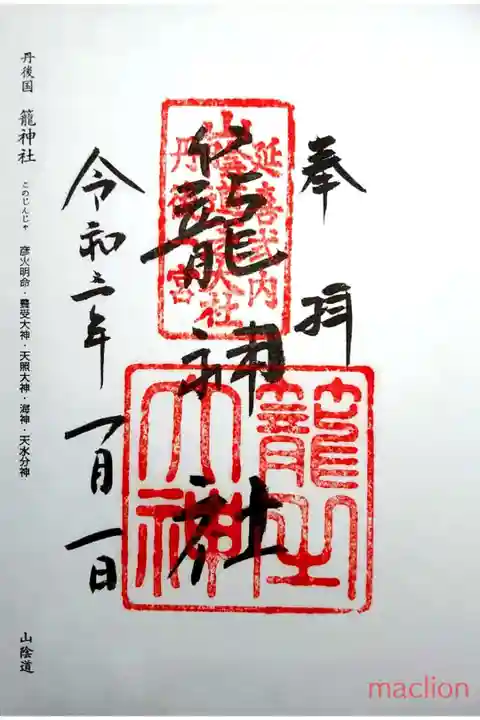 奉拝
延喜式内
山陰道一大社
丹後一宮
籠神社
籠之大神
令和三年 一月一日
丹後国 籠神社 このじんじゃ 彦火明命・豊受大神・天照大神・海神・天水分神 山陰道
maclion